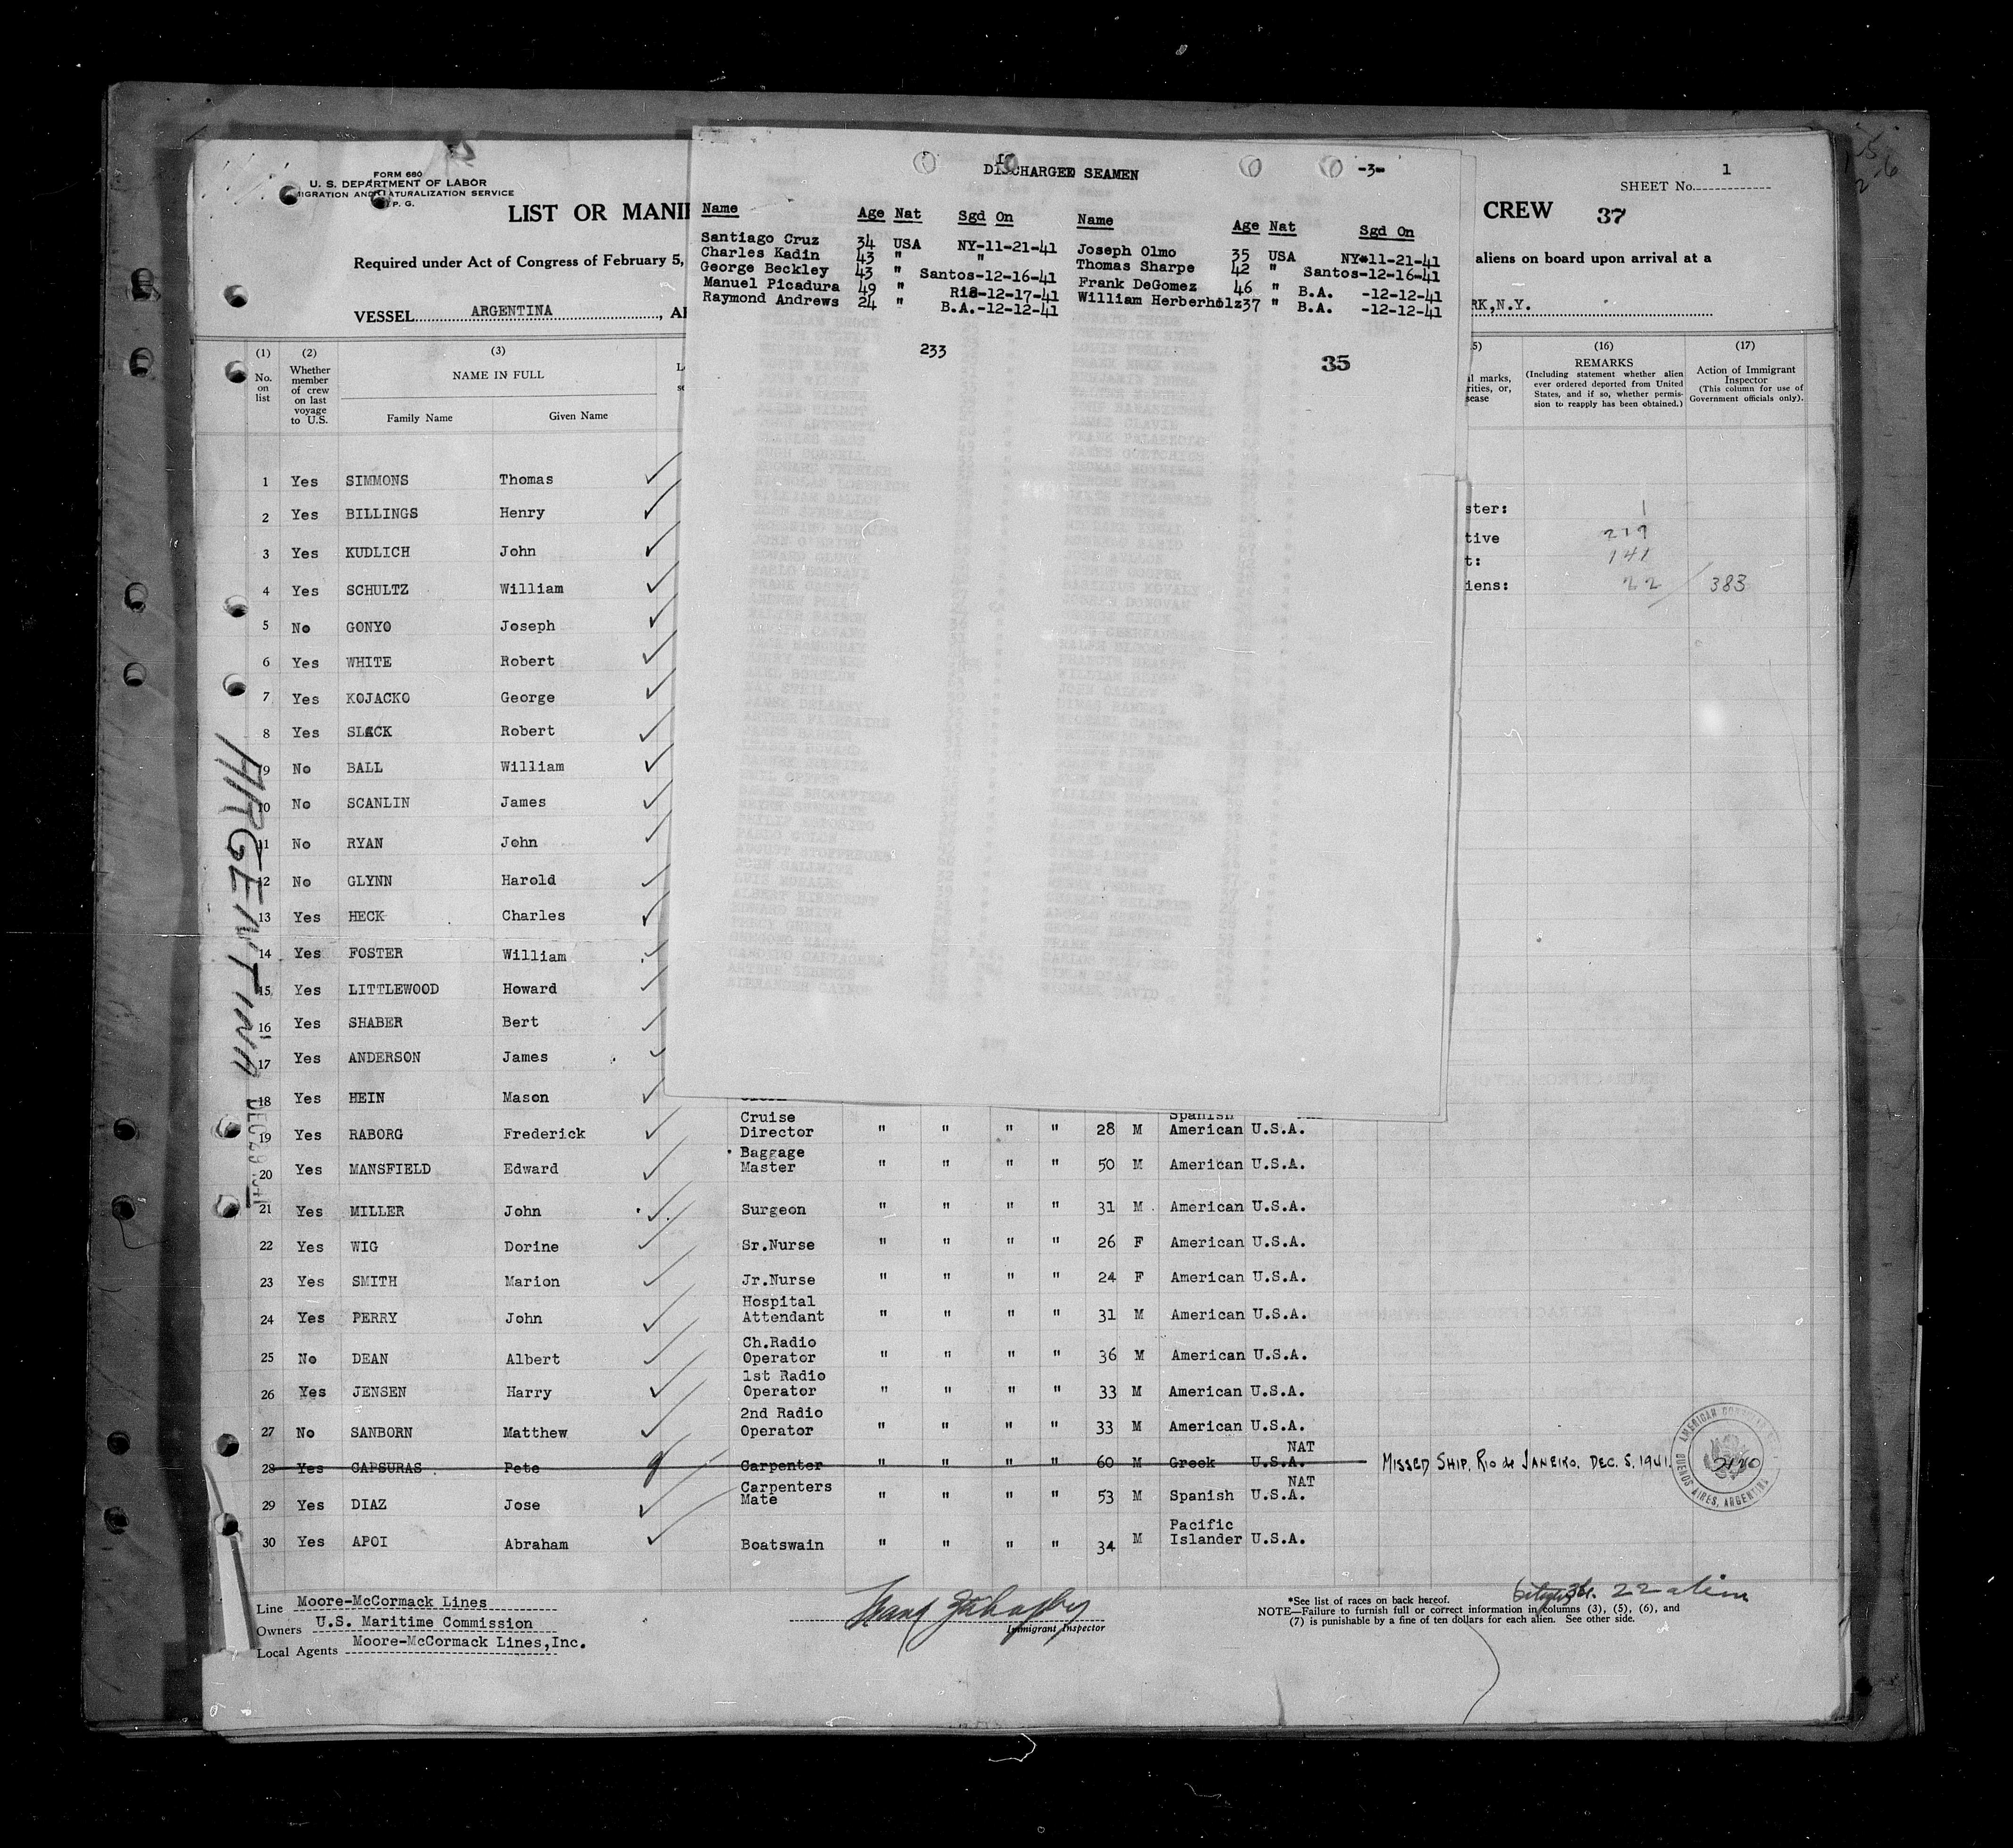 FORM 680
U. S. DEPARTMENT OF LABOR
MIGRATION AND NATURALIZATION SERVICE
P. G.
LIST OR MANI
CREW 37
SHEET No. 1
Required under Act of Congress of February 5,
aliens on board upon arrival at a
VESSEL ARGENTINA, A
RK,N.Y.
DISCHARGED SEAMEN -3-
Name Age Nat Sgd On Name Age Nat Sgd On
Santiago Cruz 34 USA NY-11-21-41 Joseph Olmo 35 USA NY*11-21-41
Charles Kadin 43 " " Thomas Sharpe 42 " Santos-12-16-41
George Beckley 43 " Santos-12-16-41 Frank DeGomez 46 " B.A. -12-12-41
Manuel Picadura 49 " Rio-12-17-41 William Herberholz37 " B.A. -12-12-41
Raymond Andrews 24 " B.A.-12-12-41
233
35
(1) No. on list
(2) Whether member of crew on last voyage to U.S.
(3) NAME IN FULL
Family Name Given Name
5) l marks, rities, or, sease
(16) REMARKS (Including statement whether alien ever ordered deported from United States, and if so, whether permission to reapply has been obtained.)
(17) Action of Immigrant Inspector (This column for use of Government officials only).
ster: 1
tive 219
t: 141
iens: 22 / 383
1 Yes SIMMONS Thomas
2 Yes BILLINGS Henry
3 Yes KUDLICH John
4 Yes SCHULTZ William
5 No GONYO Joseph
6 Yes WHITE Robert
7 Yes KOJACKO George
8 Yes SLACK Robert
9 No BALL William
10 No SCANLIN James
11 No RYAN John
12 No GLYNN Harold
13 Yes HECK Charles
14 Yes FOSTER William
15 Yes LITTLEWOOD Howard
16 Yes SHABER Bert
17 Yes ANDERSON James
18 Yes HEIN Mason
19 Yes RABORG Frederick Cruise Director " " " " 28 M Spanish American U.S.A.
20 Yes MANSFIELD Edward Baggage Master " " " " 50 M American U.S.A.
21 Yes MILLER John Surgeon " " " " 31 M American U.S.A.
22 Yes WIG Dorine Sr.Nurse " " " " 26 F American U.S.A.
23 Yes SMITH Marion Jr.Nurse " " " " 24 F American U.S.A.
24 Yes PERRY John Hospital Attendant " " " " 31 M American U.S.A.
25 No DEAN Albert Ch.Radio Operator " " " " 36 M American U.S.A.
26 Yes JENSEN Harry 1st Radio Operator " " " " 33 M American U.S.A.
27 No SANBORN Matthew 2nd Radio Operator " " " " 33 M American U.S.A.
28 Yes CAPSURAS Pete Carpenter " " " " 60 M Greek NAT U.S.A. MISSED SHIP, RIO de JANEIRO. DEC. 5, 1941.
29 Yes DIAZ Jose Carpenters Mate " " " " 53 M Spanish NAT U.S.A.
30 Yes APOI Abraham Boatswain " " " " 34 M Pacific Islander U.S.A.
ARGENTINA DEC 29 1941
AMERICAN BUENOS AIRES, ARGENTINA
Line Moore-McCormack Lines
Owners U.S. Maritime Commission
Local Agents Moore-McCormack Lines,Inc.
Immigrant Inspector
22 alien
*See list of races on back hereof.
NOTE—Failure to furnish full or correct information in columns (3), (5), (6), and
(7) is punishable by a fine of ten dollars for each alien. See other side.